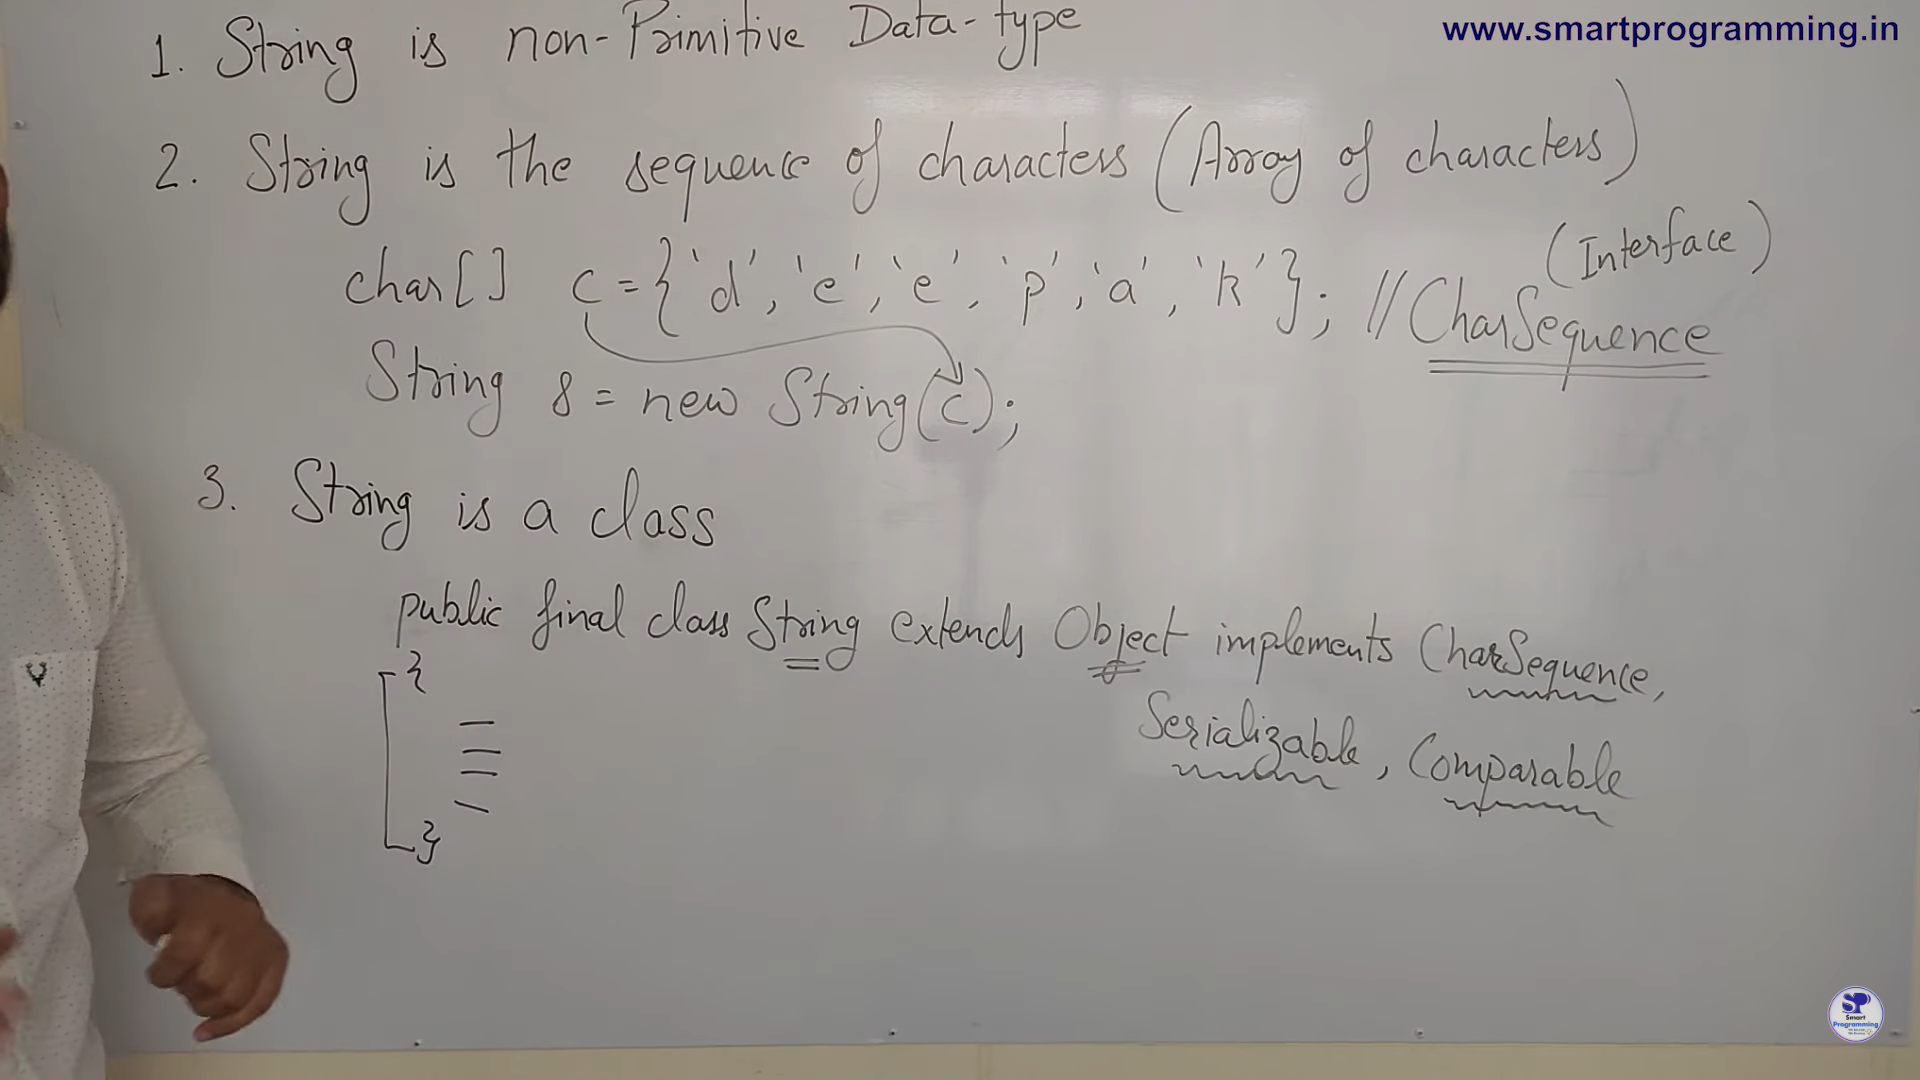 www.smartprogramming.in
1. String is non-Primitive Data-type
2. String is the sequence of characters (Array of characters)
(Interface)
char[] c = {'d', 'e', 'e', 'p', 'a', 'k'}; // CharSequence
String s = new String(c);
3. String is a class
public final class String extends Object implements CharSequence,
Serializable, Comparable
{
}
SP
Smart
Programming